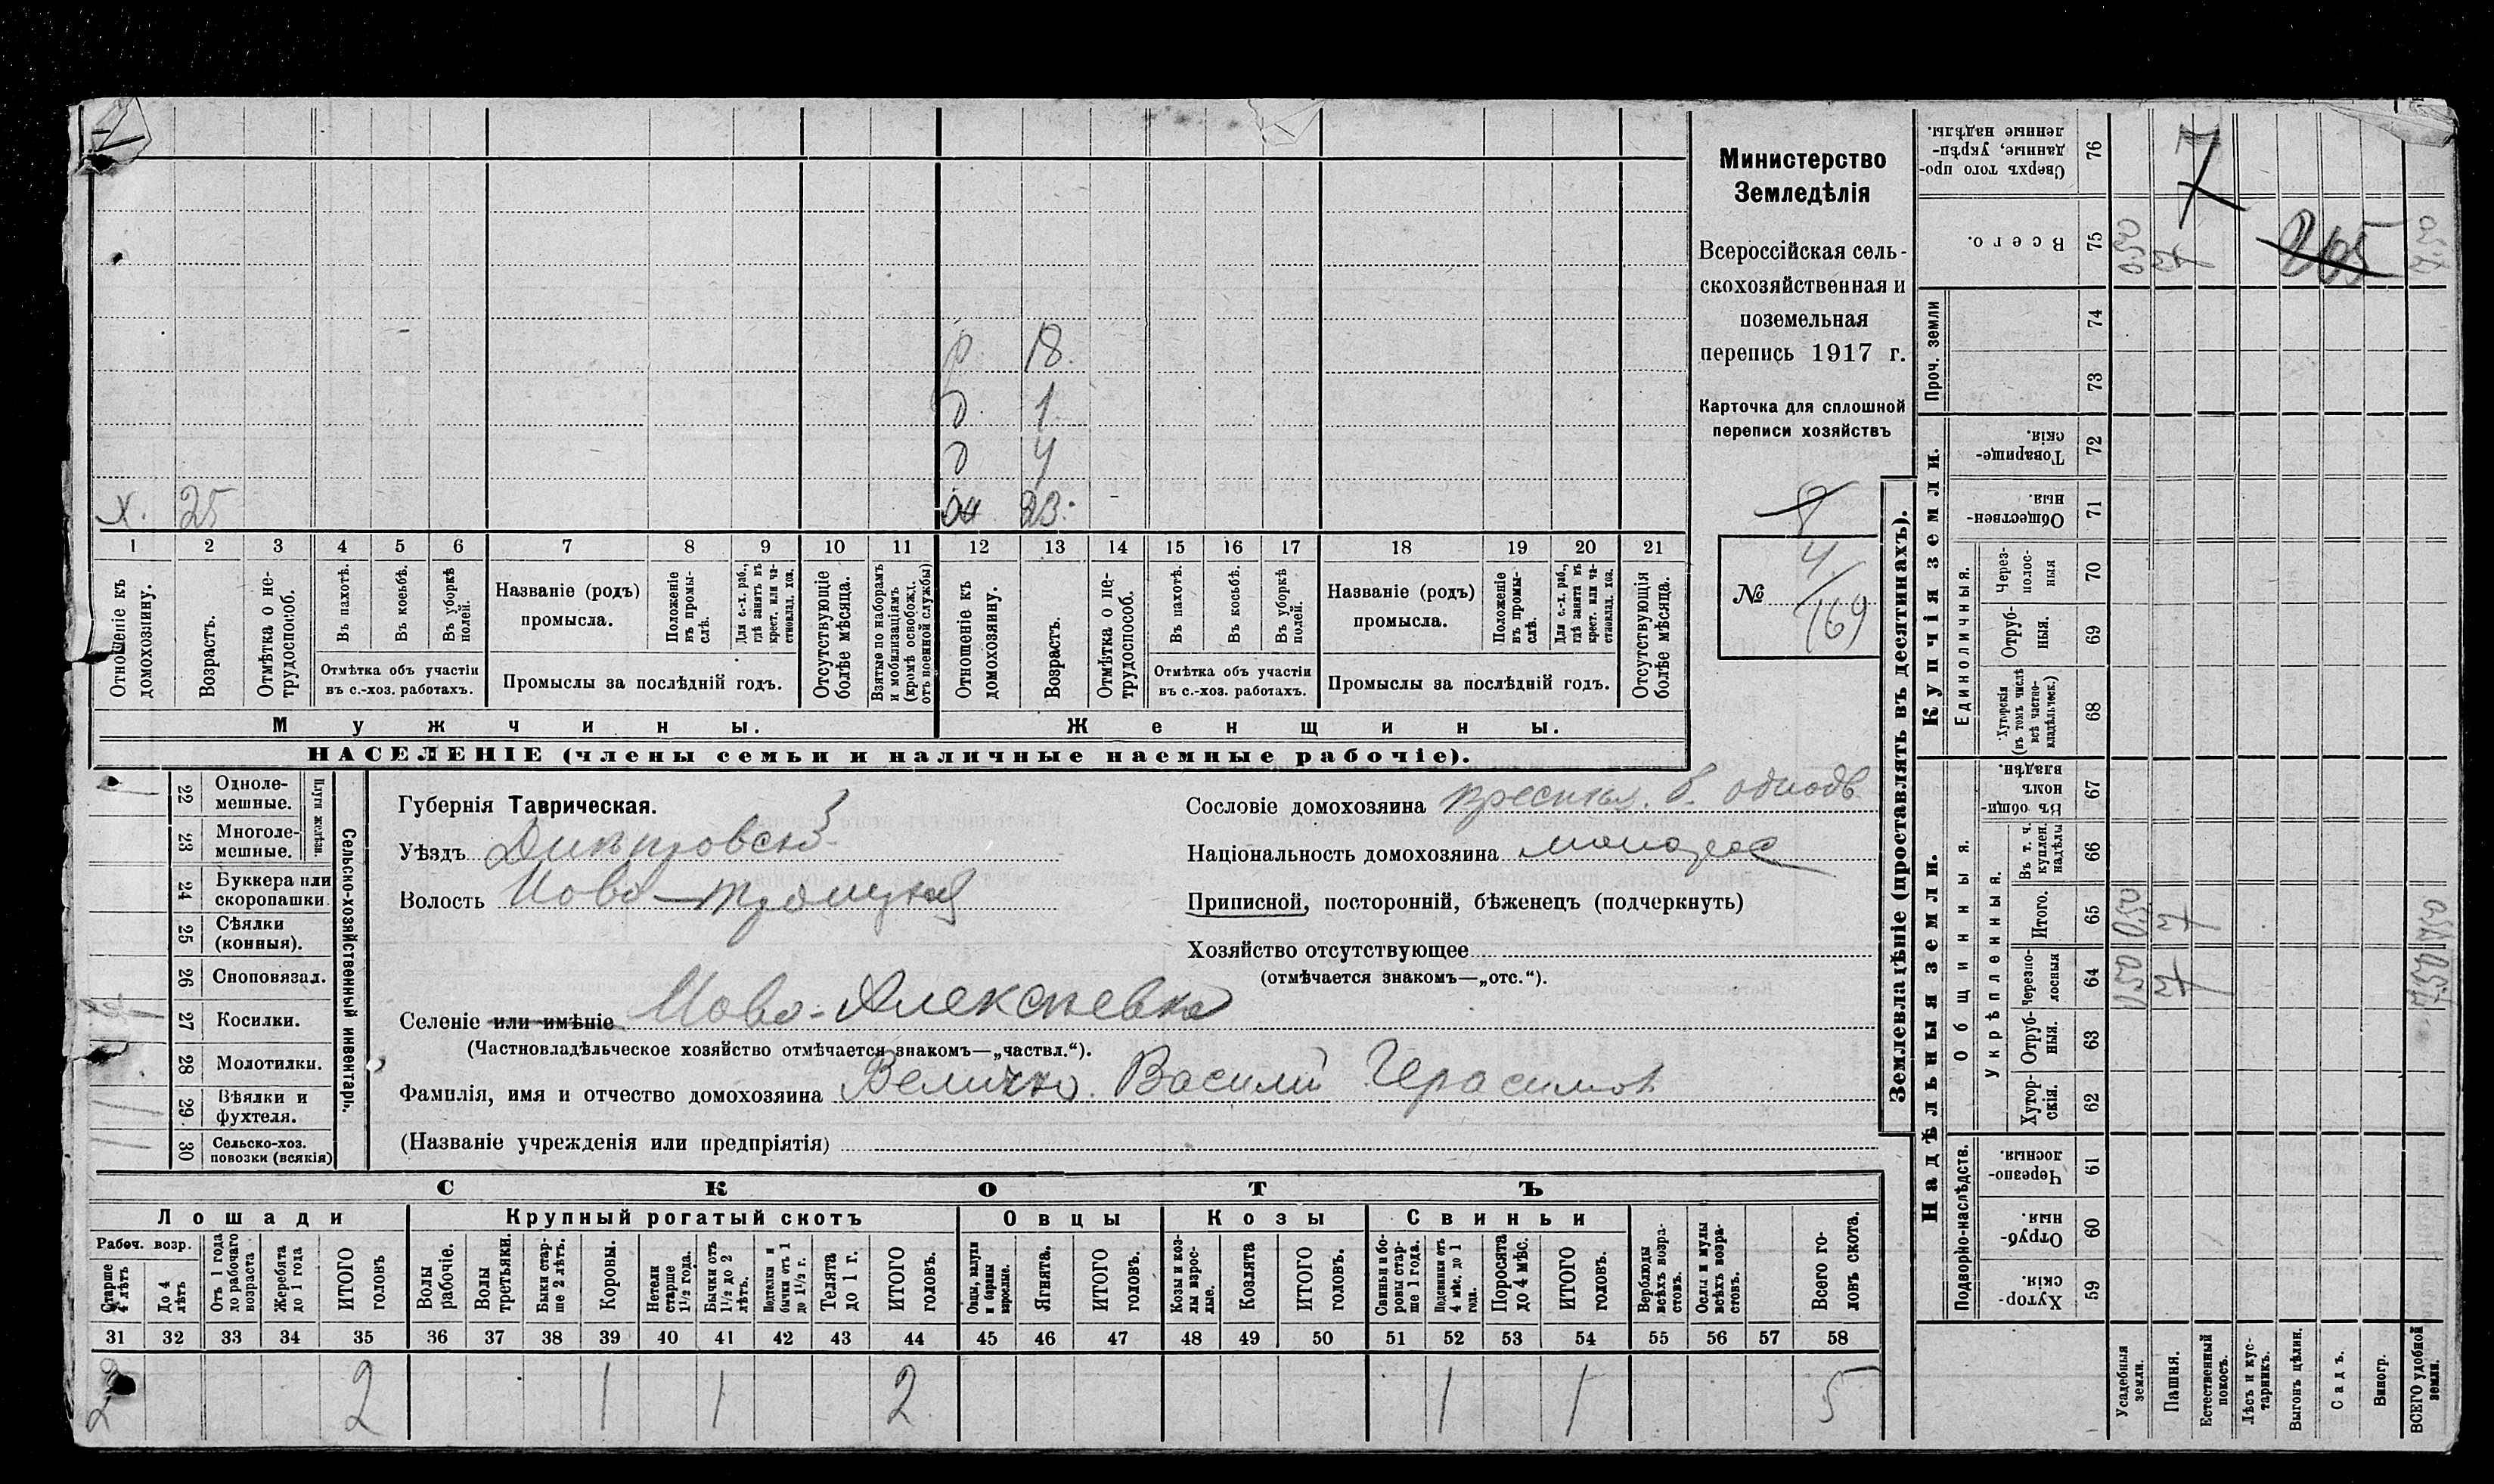 Министерство
Земледѣлія
Всероссійская сель-
скохозяйственная и
поземельная
перепись 1917 г.
Карточка для сплошной
переписи хозяйствъ
18.
1
4
х. 25
23.
№ 4/169
1 2 3 4 5 6 7 8 9 10 11 12 13 14 15 16 17 18 19 20 21
Отношеніе къ домохозяину.
Возрастъ.
Отмѣтка о не-трудоспособ.
Въ пахотѣ.
Въ косьбѣ.
Въ уборкѣ полей.
Отмѣтка объ участіи
въ с.-хоз. работахъ.
Названіе (родъ)
промысла.
Положеніе въ промы-слѣ.
Для с.-х. раб., гдѣ занятъ въ крест. или ча-стновлад. хоз.
Промыслы за послѣдній годъ.
Отсутствующіе болѣе мѣсяца.
Взятые по наборамъ и мобилизаціямъ (кромѣ освобожд. отъ военной службы)
Отношеніе къ домохозяину.
Возрастъ.
Отмѣтка о не-трудоспособ.
Въ пахотѣ.
Въ косьбѣ.
Въ уборкѣ полей.
Отмѣтка объ участіи
въ с.-хоз. работахъ.
Названіе (родъ)
промысла.
Положеніе въ промы-слѣ.
Для с.-х. раб., гдѣ занята въ крест. или ча-стновлад. хоз.
Промыслы за послѣдній годъ.
Отсутствующія болѣе мѣсяца.
Мужчины.
Женщины.
НАСЕЛЕНІЕ (члены семьи и наличные наемные рабочіе).
22 Одноле-мешные.
23 Многоле-мешные.
Плуги желѣзн.
24 Буккера или скоропашки
25 Сѣялки (конныя).
26 Сноповязал.
27 Косилки.
28 Молотилки.
29 Вѣялки и фухтеля.
30 Сельско-хоз. повозки (всякія)
Сельско-хозяйственный инвентарь.
Губернія Таврическая.
Уѣздъ Днѣпровскій
Волость Ново-Троицкая
Селеніе или имѣніе Ново-Алексѣевка
(Частновладѣльческое хозяйство отмѣчается знакомъ—„частвл.“).
Фамилія, имя и отчество домохозяина Величко Василий Герасимов
(Названіе учрежденія или предпріятія)
Сословіе домохозяина
Національность домохозяина малорос
Приписной, посторонній, бѣженецъ (подчеркнуть)
Хозяйство отсутствующее
(отмѣчается знакомъ—„отс.“).
СКОТЪ
Лошади
Крупный рогатый скотъ
Овцы
Козы
Свиньи
Рабоч. возр.
Старше 4 лѣтъ
До 4 лѣтъ
Отъ 1 года до рабочаго возраста
Жеребята до 1 года
ИТОГО головъ
Волы рабочіе.
Волы третьяки.
Быки стар-ше 2 лѣтъ.
Коровы.
Нетели старше 1½ года.
Бычки отъ 1½ до 2 лѣтъ.
Подтелки и бычки отъ 1 до 1½ г.
Телята до 1 г.
ИТОГО головъ.
Овцы, валухи и бараны взрослые.
Ягнята.
ИТОГО головъ.
Козы и коз-лы взрос-лые.
Козлята
ИТОГО головъ.
Свиньи и бо-ровы стар-ше 1 года.
Подсвинки отъ 4 мѣс. до 1 года.
Поросята до 4 мѣс.
ИТОГО головъ.
Верблюды всѣхъ возра-стовъ.
Ослы и мулы всѣхъ возра-стовъ.
Всего го-ловъ скота.
31 32 33 34 35 36 37 38 39 40 41 42 43 44 45 46 47 48 49 50 51 52 53 54 55 56 57 58
2 2 1 1 2 1 1 5
Землевладѣніе (проставлять въ десятинахъ).
Надѣльныя земли.
Купчія земли.
Проч. земли
Сверхъ того про-данные, укрѣп-ленные надѣлы. 76
7
Всего. 75
265
74
73
Товарище-скія. 72
Обществен-ныя. 71
Единоличныя.
Через-полос-ныя 70
Отруб-ныя. 69
Хуторскія (въ томъ числѣ всѣ частно-владѣльческ.) 68
Общинныя.
Въ общи-номъ владѣн. 67
Укрѣпленныя.
Въ т. ч. куплен. надѣлы 66
Итого. 65
Черезпо-лосныя 64
Отруб-ныя. 63
Хутор-скія. 62
Подворно-наслѣдств.
Черезпо-лосныя. 61
Отруб-ныя. 60
Хутор-скія. 59
Усадебныя земли.
Пашня.
Естественный покосъ.
Лѣсъ и кус-тарникъ.
Выгонъ цѣлин.
Садъ.
Виногр.
ВСЕГО удобной земли.